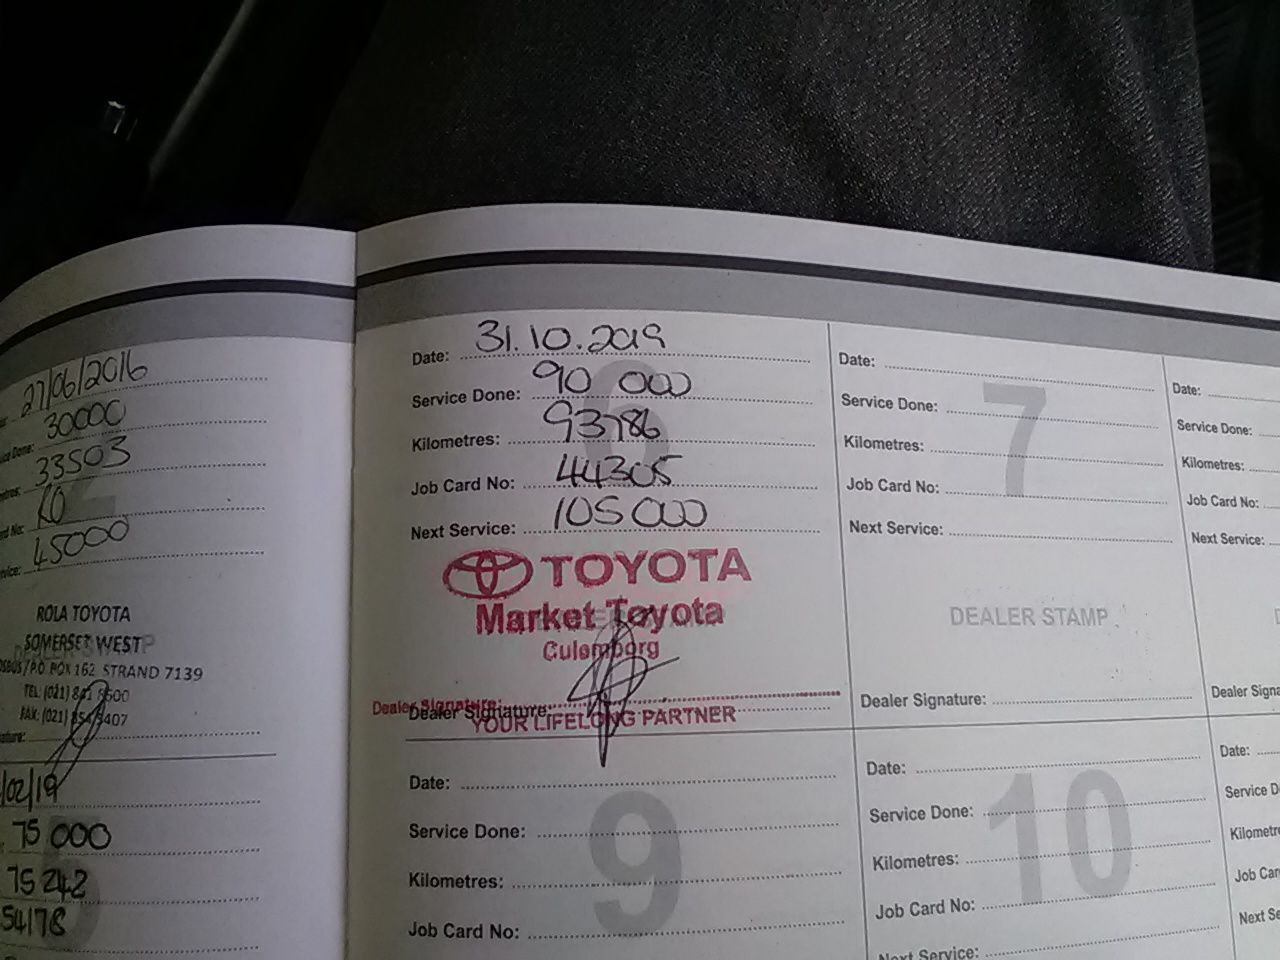 27/06/2016
30000
33503
RO
45000
ROLA TOYOTA
SOMERSET WEST
BOX 162 STRAND 7139
TEL: (021)
FAX: (021)
/02/19
75 000
75242
54178
Date: 31.10.2019
Service Done: 90 000
Kilometres: 93786
Job Card No: 44305
Next Service: 105 000
6
TOYOTA
Market Toyota
Culemborg
Dealer Signature:
Dealer Signature:
YOUR LIFELONG PARTNER
Date:
Service Done:
Kilometres:
Job Card No:
Next Service:
7
DEALER STAMP
Dealer Signature:
Date:
Service Done:
Kilometres:
Job Card No:
Next Service:
Date:
Service Done:
Kilometres:
Job Card No:
9
Date:
Service Done:
Kilometres:
Job Card No:
Next Service:
10
Date: